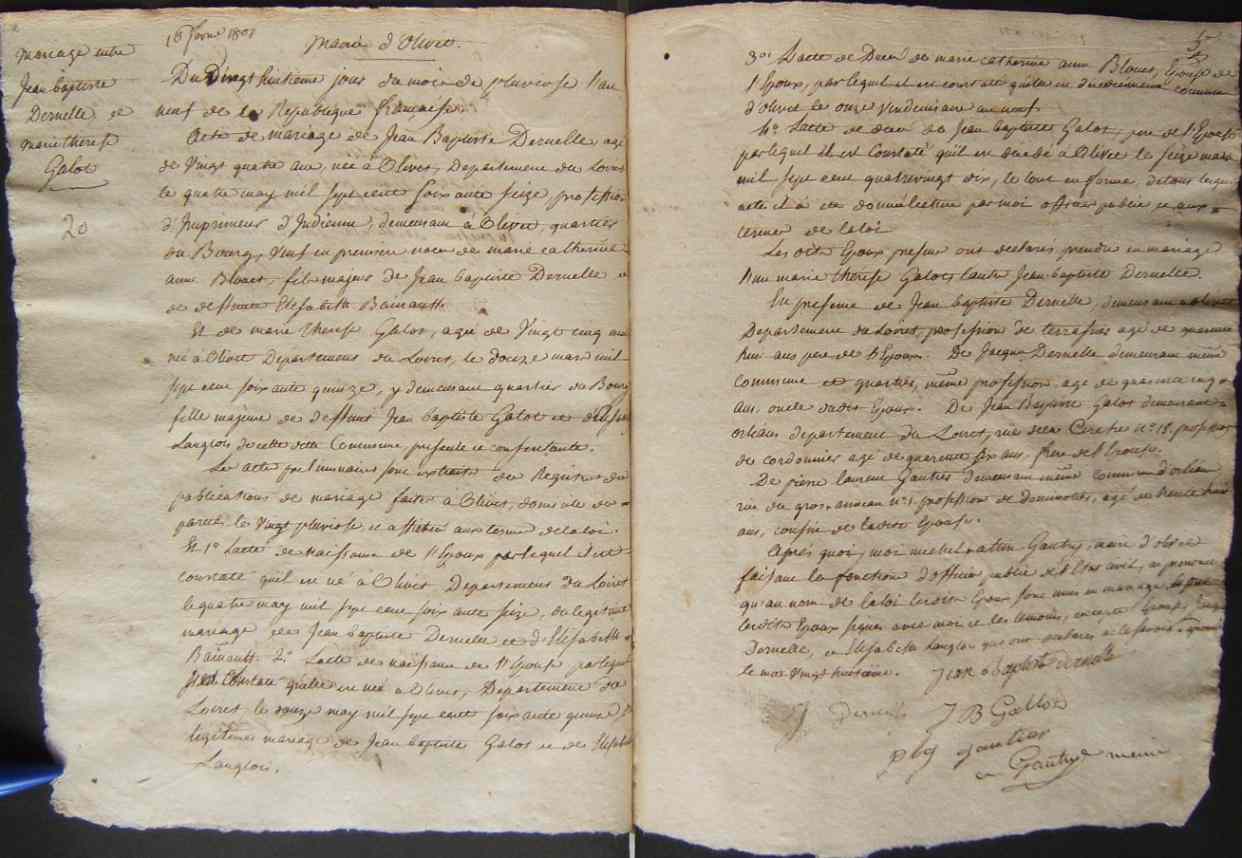 Mariage entre
Jean baptiste
Dernelle et
marie therese
Galot
20
Mairie d'Olivet.
Du Vingt huitieme jour du mois de pluviose l'an
neuf de la Republique française.
Acte de mariage de Jean Baptiste Dernelle agé
de Vingt quatre ans, né à Olivet, Departement du Loiret
le quatre may mil sept cent soixante seize, profession
d'Imprimeur d'Indienne, demeurant à Olivet, quartier
du Bourg, Veuf en premier noce de marie catherine
anne Blouet, fils majeur de Jean baptiste Dernelle et
de deffunte Elisabeth Bainault.
Et de marie therese Galot, agé de Vingt cinq ans
né à Olivet Departement du Loiret, le douze mars mil
sept cent soixante quinze, y demeurant quartier du Bourg
fille majeure de deffunt Jean baptiste Galot et
Langlois de cette ditte Commune, presente et consentante.
Les actes preliminaires sont extraits des Registres des
publications de mariage faites à Olivet,
le Vingt pluviose et affichés aux termes de la loi.
Et 1o L'acte de naissance de l'Epoux par lequel il est
constaté qu'il est né à Olivet Departement du Loiret
le quatre may mil sept cent soixante seize, du legitime
mariage de Jean baptiste Dernelle et d'Elisabeth
Bainault. 2o L'acte de naissance de l'Epouse par lequel
il est constaté qu'elle est né à Olivet, Departement du
Loiret le douze may mil sept cent soixante quinze du
legitime mariage de Jean baptiste Galot et de Elisabeth
Langlois.
3o L'acte de Deces de marie catherine anne Blouet, Epouse de
l'Epoux, par lequel il est constaté qu'elle est decedée commune
d'olivet le onze vendemiaire an neuf.
4o L'acte de deces de Jean baptiste Galot, pere de l'Epouse
par lequel il est Constaté qu'il est decedé à Olivet le seize mars
mil sept cent quatrevingt dix, le tout en forme, de tous lesquels
actes il a été donné lecture par moi officier public, et aux
termes de la loi
Les dits Epoux presents ont declarés prendre en mariage
l'une marie therese Galot l'autre Jean baptiste Dernelle.
En presence de Jean baptiste Dernelle, demeurant à Olivet
Departement du Loiret, profession de terrassier agé de quarante
huit ans pere de l'Epoux. De Jacques Dernelle demeurant même
Commune et quartier, même profession, agé de quarante cinq
ans, oncle dudit Epoux. De Jean Baptiste Galot demeurant à
orleans departement du Loiret, rue des no 18. profession
de cordonnier agé de quarente six ans frere de l'Epouse.
De pierre laurent Gautier demeurant même commune d'orleans
rue du gros anneau no 1. profession de agé de trente huit
ans, cousin de ladite Epouse.
Après quoi, moi michel Gautry, maire d'olivet
faisant les fonctions d'officier public de l'Etat civil, ai prononcé
qu'au nom de la loi lesdits Epoux sont unis en mariage,
lesdits Epoux signés avec moi et les temoins, excepté
Dernelle, et Elisabeth Langlois qui ont declarés ne le savoir
le mot Vingt huitieme.
Jean baptiste dernelle
J B Gallot
gautier
Gautry maire